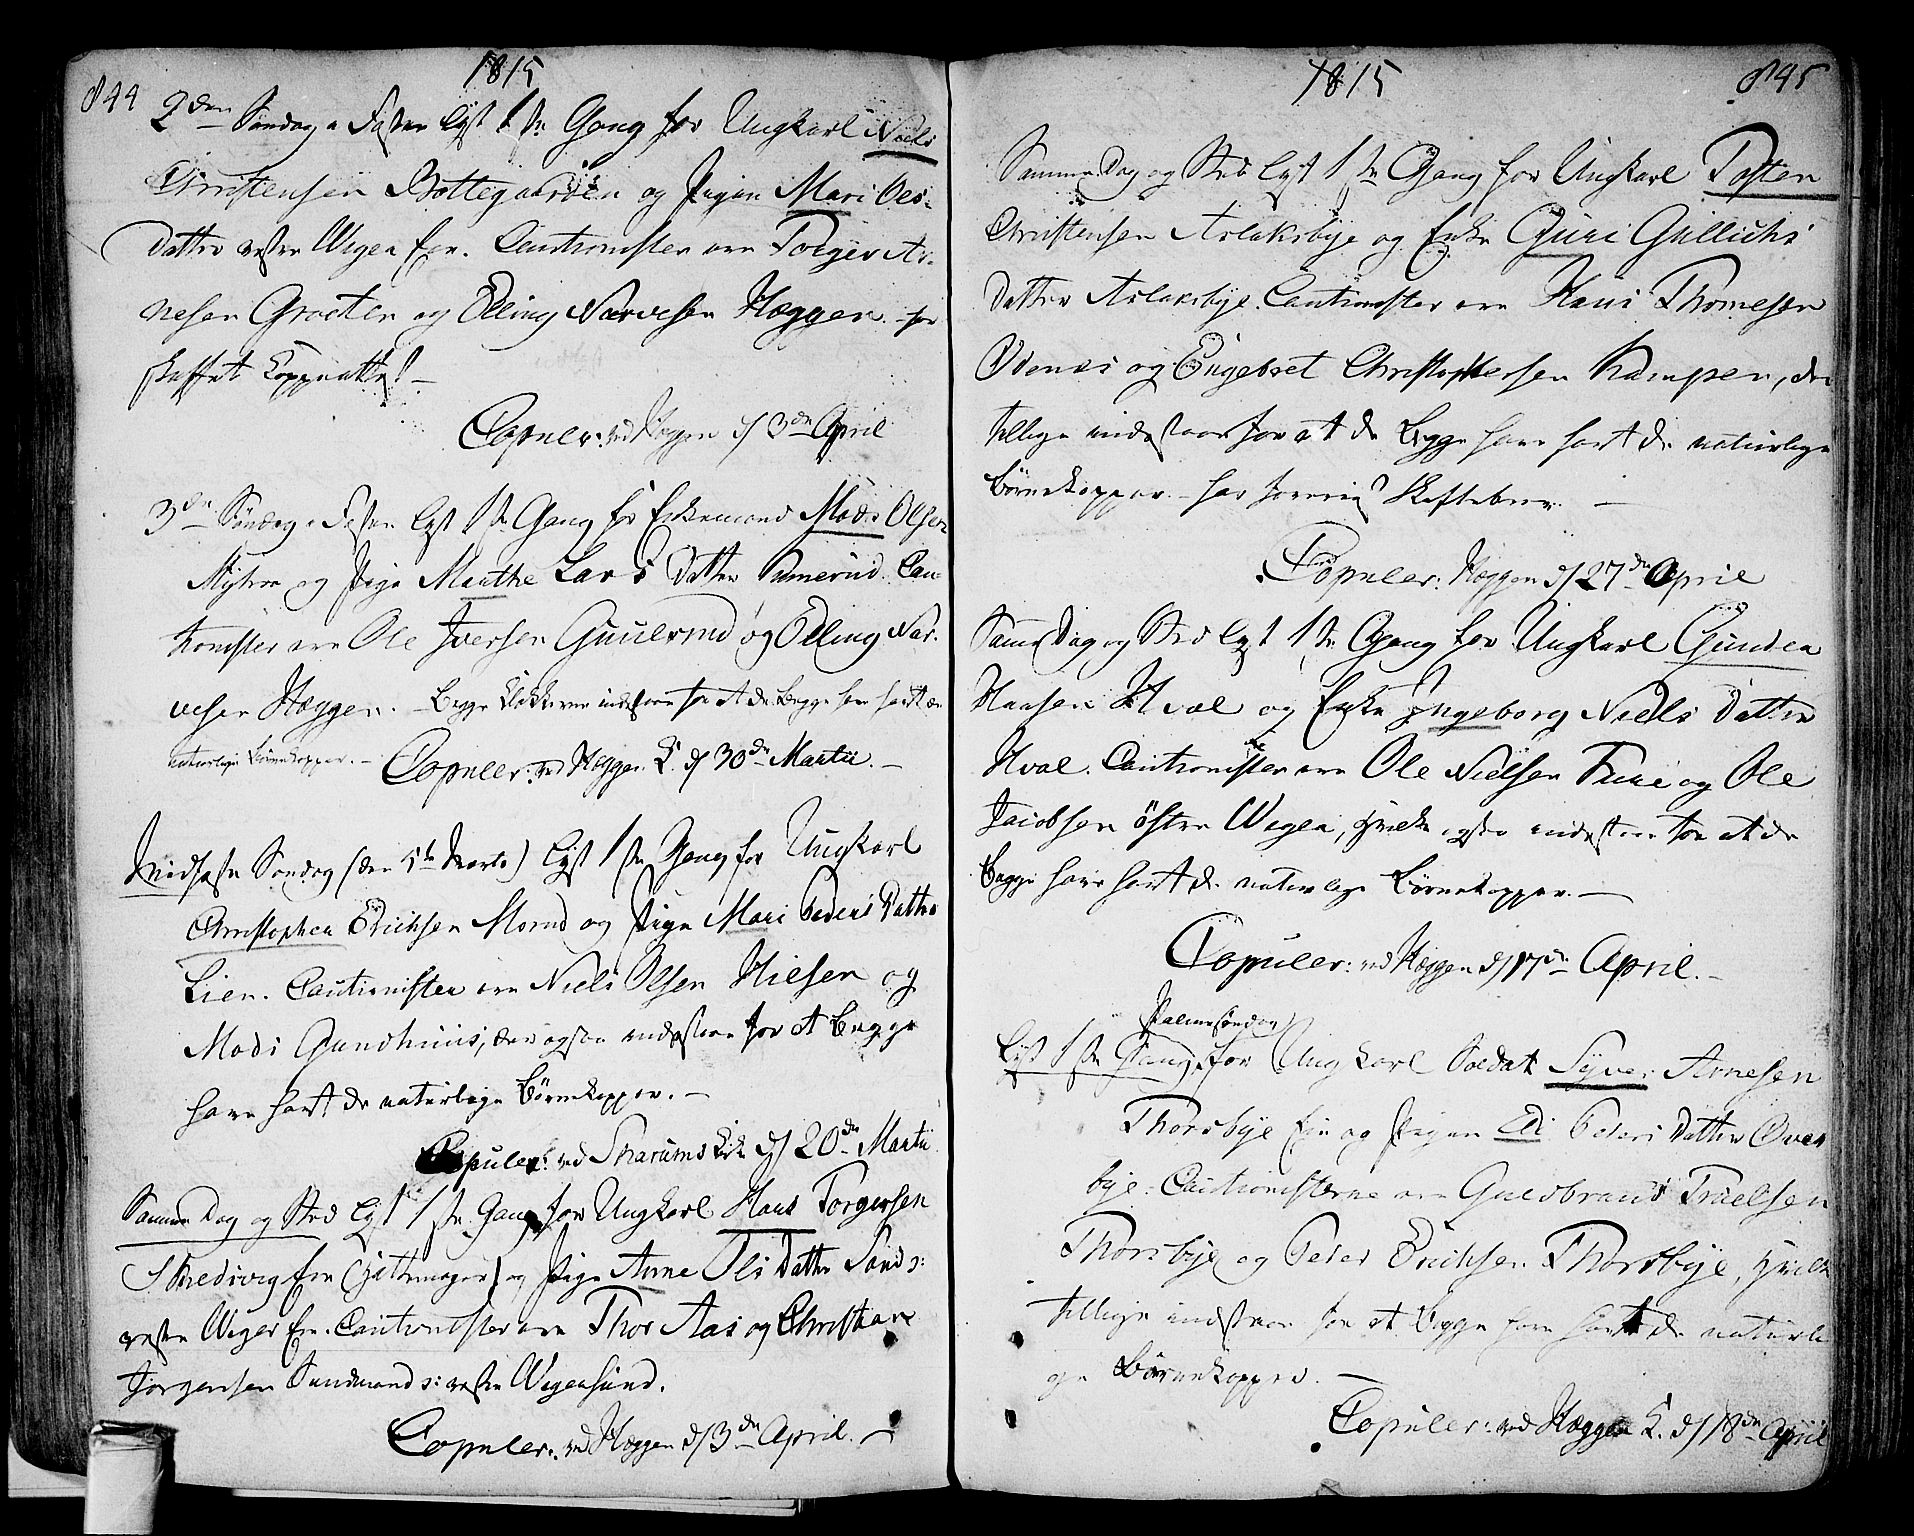 844
1815
2den Søndag i Fasten lyst 1ste Gang for Ungkarl Niels
Christensen Bottegaarden og Pigen Mari Ols-
datter vestre Wigen Eie. Cautionister ere Torger Ar-
nesen Groeten og Elling Narvesen Hæggen. - har
skaffet Koppeattest -
Copuler: ved Hæggen d/ 3de April
3de Søndag i Fasten lyst 1ste Gang for Enkemand Mads Olsen
Myhre og Pige Marthe Lars Datter Rumerud. Cau-
tionister ere Ole Iversen Guulerud og Elling Nar-
vesen Hæggen. - Begge Klokkerne indestaae for at de Begge have havt de
naturlige Børnekopper. -
Copuler: ved Hæggen K. d/ 30de Martii. -
Midfaste Søndag (den 5te Marts) lyst 1ste Gang for Ungkarl
Christopher Erichsen Morud og Pige Mari Peders Datter
Lien. Cautionister ere Niels Olsen Hilsen og
Mads Gundhuus, der ogsaa indestaae for at Begge
have havt de naturlige Børnekopper. -
Copuler: ved Snarums Kirke d/ 20de Martii
Samme Dag og Sted lyst 1ste Gang for Ungkarl Hans Torgersen
Skredsvig Eie og Pige Anne Ols Datter Sands:
vestre Wigen Eie. Cautionister ere Thor Aas og Christian
Jørgensen Sandmands: vestre Wigensund.
Copuler: ved Hæggen d/ 3de April. -
1815
845
Samme Dag og Sted lyst 1ste Gang for Ungkarl Tosten
Christensen Aslaksbye og Enke Guri Gullichs
Datter Aslaksbye. Cautionister ere Hans Thomesen
Odenæs og Engebret Christophersen Kampen, der
tillige indestaae for at de Begge have havt de naturlige
Børnekopper. - har foreviist Skiftebrev. -
Copuler: Hæggen d/ 27de April
Samme Dag og Sted lyst 1ste Gang for Ungkarl Gunder
Hansen Hval og Enke Ingeborg Niels Datter
Hval. Cautionister ere Ole Nielsen Ture og Ole
Jacobsen østre Wigen, hvilke ogsaa indestaae for at de
Begge have havt de naturlige Børnekopper. -
Copuler: ved Hæggen d/ 17de April. -
Palmesøndag
Lyst 1ste Gang for Ungkarl Soldat Syver Arnesen
Thorsbye Eie og Pigen Edi Peders Datter Over
bye. Cautionisterne ere Guldbrand Truelsen
Thorsbye og Peder Erichsen Thorsbye, hvilke
tillige indestaae for at Begge have havt de naturli
ge Børnekopper. -
Copuler: ved Hæggen K. d/ 18de April